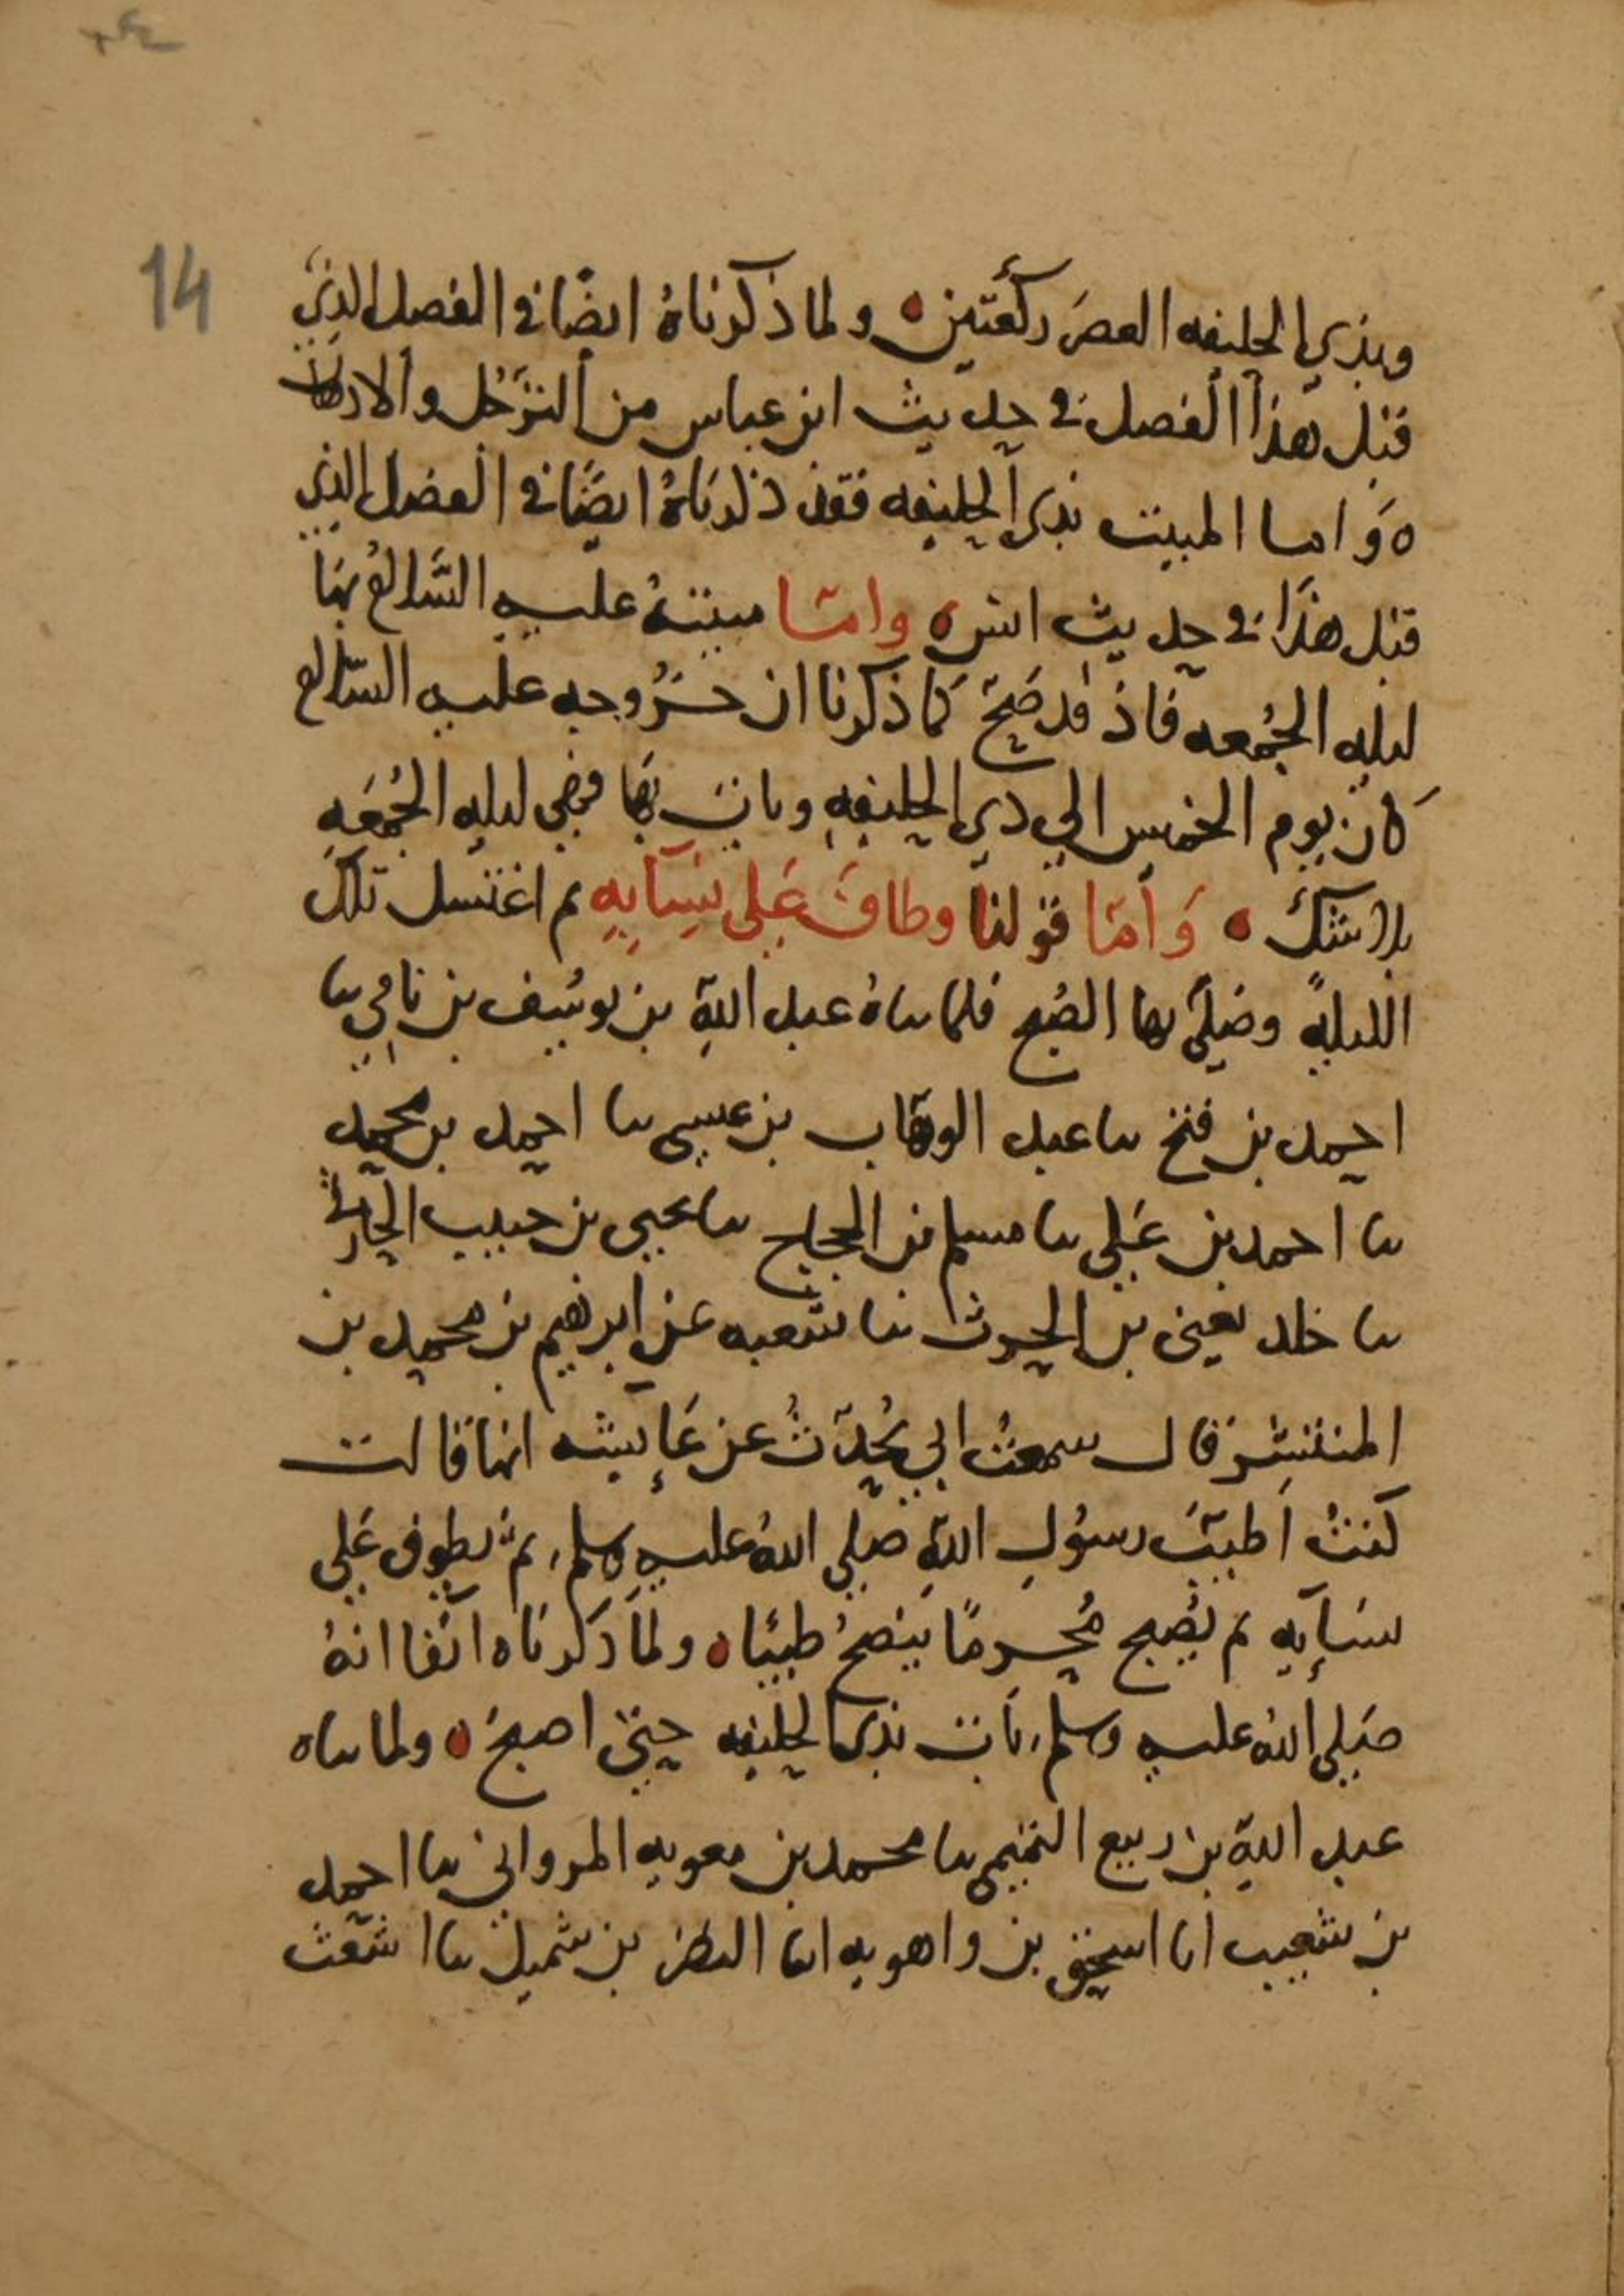 14
وبذي الحليفه العصر ركعتين ولما ذكرناهُ ايضًا في الفصل الذي
قبل هذا الفصل في حديث ابن عباس من الترَجُل والادهان
وَاما المبيت بذي الحليفه فقد ذكرناهُ ايضًا في الفصل الذي
قبل هذا في حديث انس وامّا مبيتهُ عليه السَّلامُ بهَا
ليله الجُمعه فاذ قد صَحّ كما ذكرنا ان خُروجه عليه السّلام
كَان يوم الخميس الي ذي الحليفهِ وبات بهَا فهي ليله الجُمعَهِ
بلا شك وَأمّا قولنا وطافَ عَلي نِسَآيِهِ ثم اغتسل تلك
الليلهً وصَلّي بها الصُبح فلما ثناهُ عبد اللهِ بن يوسُف بن نامِي ثنا
احمد بن فتح ثنا عبد الوهّاب بن عيسي ثنا احمد بن محمد
ثنا احمد بن عَلي ثنا مسلم بن الحجاج ثنا يحيي بن حبيب الحارثي
ثنا خلد يعني بن الحرث ثنا شعبه عن ابرهيم بن محمد بن
المنتشِر قال سمعتُ ابي يُحدّثُ عن عَآئيشه انها قالت
كنتُ اَطيّبُ رسوُلِ اللهِ صلي اللهُ عليه وسلم ثمّ يطوف عَلي
نسَآيِه ثم يُصبح مُحرمًا ينضخُ طيبًا ولما ذكرناه آنفا انهُ
صَلي اللهُ عليه وسلم بَات بذي الحليفه حتّي اصبحَ ولما ثناه
عبد اللهِ بن ربيع التميمي ثنا محمد بن معويه المرواني ثنا احمد
بن شعيب انا اسحق بن واهويه انا النظر بن شميل ثنا اشعث